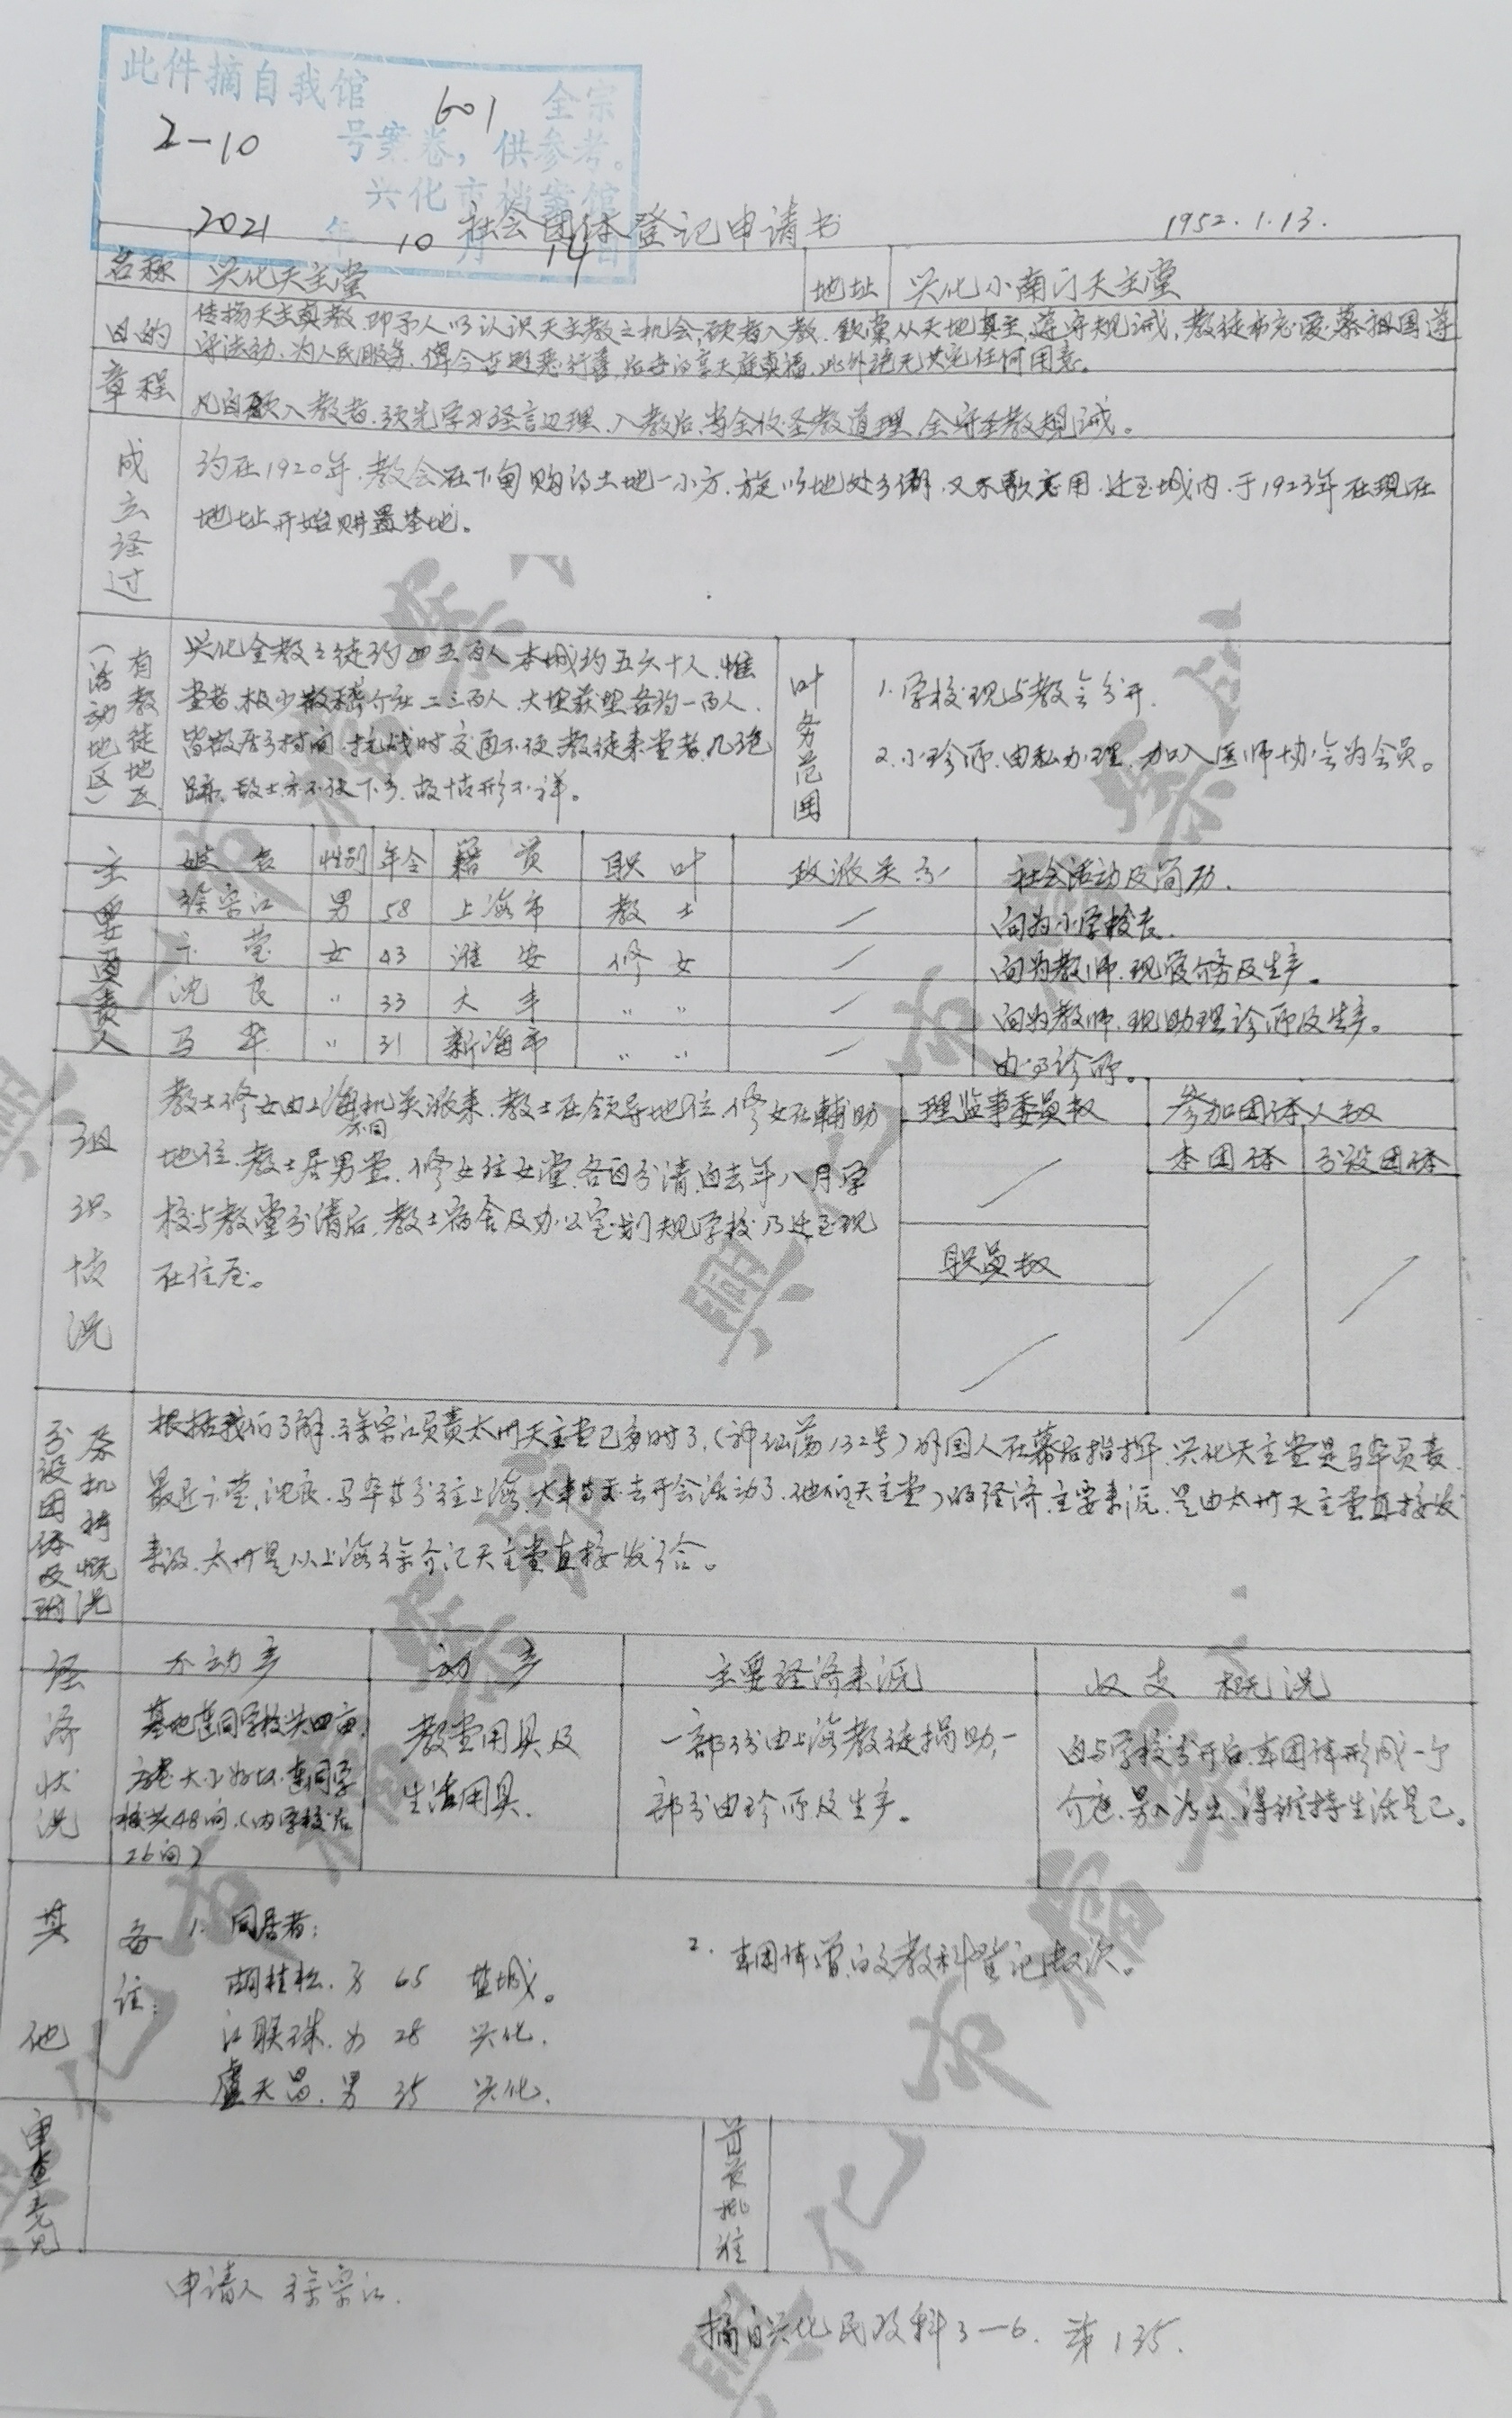 此件摘自我馆 601 全宗
2-10 号案卷，供参考。
兴化市档案馆
2021 年 10 月 14 日
社会团体登记申请书 1952.1.13.
名称 兴化天主堂 地址 兴化小南门天主堂
目的 传扬天主真教，即予人以认识天主教之机会，硕者入教，钦崇从天地真主，遵守规诫，教徒有志爱慕祖国遵
守法动，为人民服务，俾今世避恶行善，后世得享天庭真福，此外绝无其它任何用意。
章程 凡自愿入教者，须先学习经言边理，入教后，当全收圣教道理，全守圣教规诫。
成立经过 约在1920年，教会在下甸购得土地一小方，旋以地处乡僻，又不敷应用，迁至城内，于1923年在现在
地址开始购置基地。
有教徒地区（活动地区） 兴化全教之徒约四五百人，本城约五六十人，惟
堂者，极少数 二三百人，大垛荻垛各约一百人，
皆散居乡村间，抗战时交通不便，教徒来堂者，几绝
踪，教士亦不便下乡，故情形不详。
叶务范围 1.学校现与教会分开，
2.小珍所，由私办理，加入医师协会为会员。
主要负责人 姓名 性别 年令 籍贯 职叶 政派关系 社会活动及简历
徐宗江 男 58 上海市 教士 / 向为小学校长.
卞莹 女 43 淮安 修女 / 向为教师，现管 务及生产。
沈良 〃 33 大丰 〃 〃 / 向为教师，现助理诊所及生产。
马华 〃 31 新海市 〃 〃 / 办 诊所。
组织情况 教士修女由上海机关派来，教士在领导地位，修女在辅助
地位，教士居男堂，修女住女堂，各自分清，自去年八月学
校与教堂分清后，教士宿舍及办公室划规学校，乃迁至现
在住屋。
理监事委员数 / 参加团体人数
本团体 分设团体
职员数 / / /
分设团体及附系机构概况 根据我们了解，徐宗江负责太州天主堂已多时了，（神仙荡132号）外国人在幕后指挥，兴化天主堂是马华负责，
最近卞莹，沈良，马华等分往上海，大丰等 去开会活动了，他们（天主堂）的经济，主要来沅，是由太州天主堂直接发
来设，太州是从上海徐介汇天主堂直接发给。
经济状况 不动产 动产 主要经济来沅 收支概况
基地连同学校共四亩，
房屋大小好坏，连同学
校共48间，（内学校占
26间）
教堂用具及
生活用具.
一部分由上海教徒捐助，一
部分由珍所及生产。
自与学校分开后，本团体形成一个
介庭，量入为出，得维持生活是已。
其他 备注：1. 同居者：
胡桂松，男 65 盐城。
江联珠，女 28 兴化.
卢天昌，男 35 兴化.
2. 本团体曾向文教科登记数次。
审查意见 首长批准
申请人 徐宗江.
摘自兴化民政科3—6. 第135.